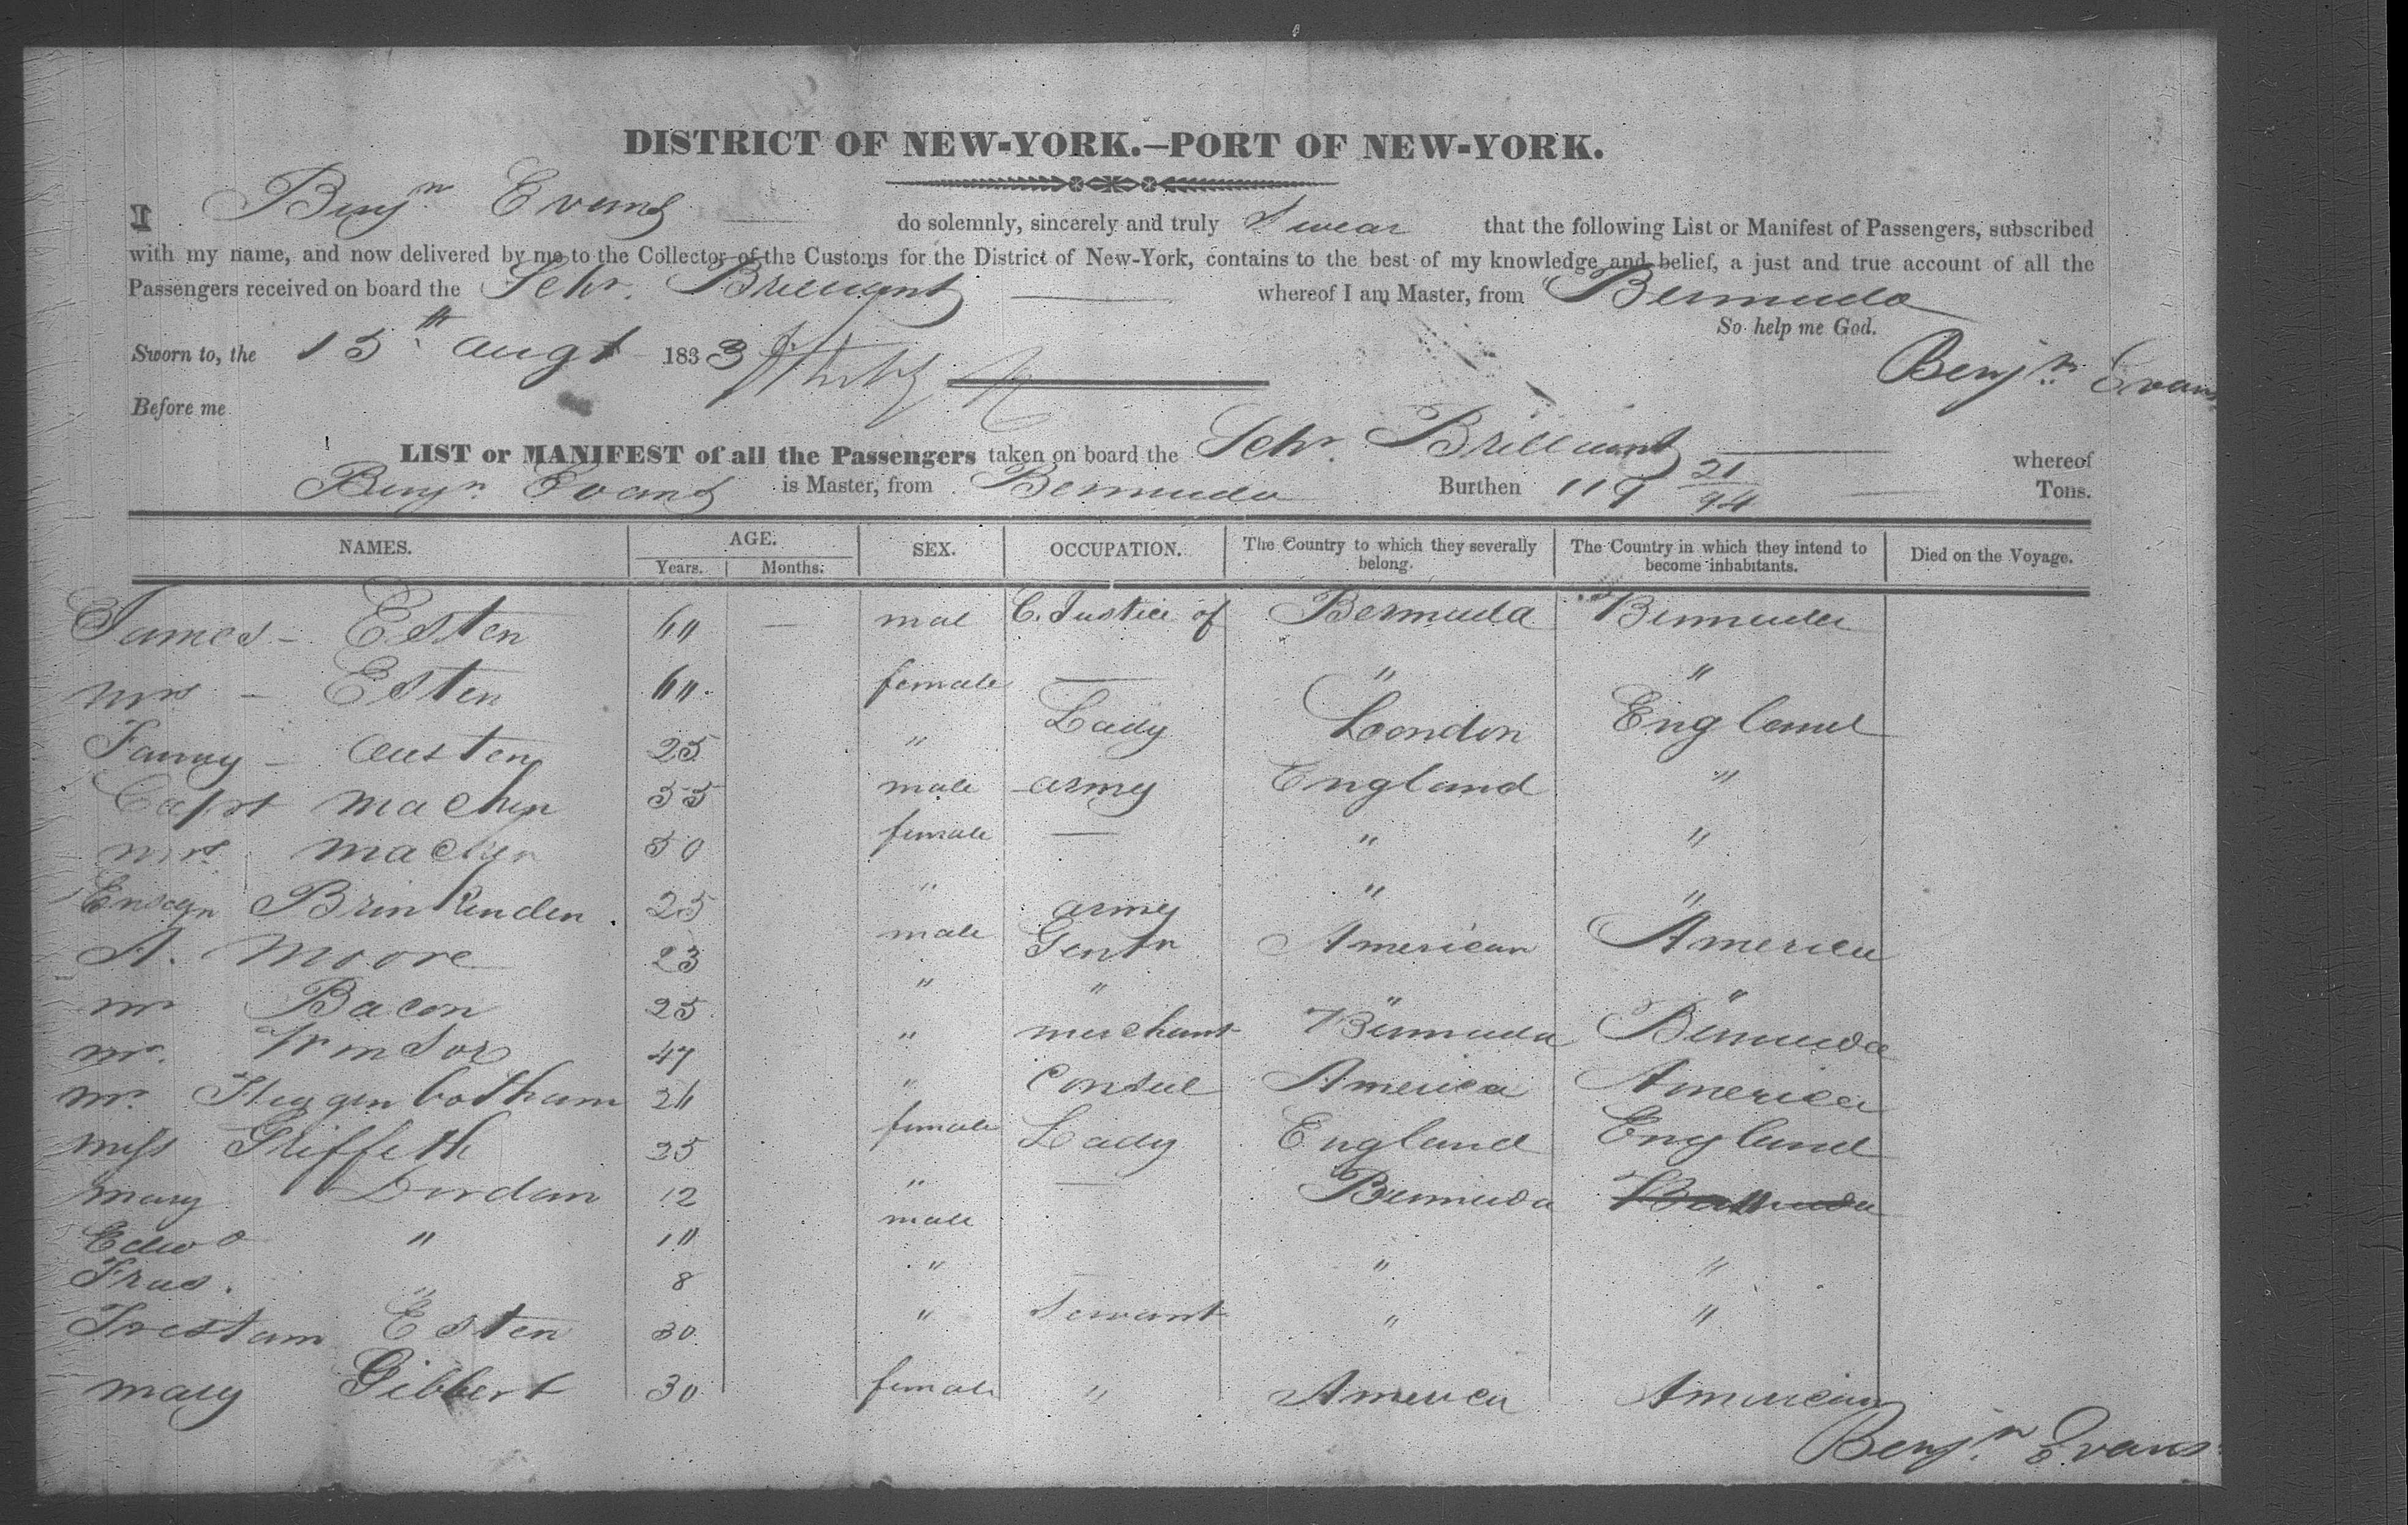 DISTRICT OF NEW-YORK.—PORT OF NEW-YORK.
I Benjn Evans do solemnly, sincerely and truly Swear that the following List or Manifest of Passengers, subscribed
with my name, and now delivered by me to the Collector of the Customs for the District of New-York, contains to the best of my knowledge and belief, a just and true account of all the
Passengers received on board the Schr. Brilliant whereof I am Master, from Bermuda
So help me God.
Sworn to, the 15th Augt 1833 Benjn Evans
Before me
LIST or MANIFEST of all the Passengers taken on board the Schr. Brilliant whereof
Benjn Evans is Master, from Bermuda Burthen 119 21/94 Tons.
NAMES. AGE. SEX. OCCUPATION. The Country to which they severally belong. The Country in which they intend to become inhabitants. Died on the Voyage.
Years. Months.
James - Esten 60 — mal C. Justice of Bermuda Bermuda
Mrs - Esten 60 female — " "
Fanny - Austen 25 " Lady London England
Capt Machen 55 male army England "
Mrs Machen 50 female — " "
Ensign Brinkenden 25 " army " "
A. Moore 23 male Gentn American America
Mr Bacon 25 " " " "
Mr. Winsor 47 " merchant Bermuda Bermuda
Mr. Huggenbotham 26 " Consul America America
Miss Griffeth 25 female Lady England England
Mary Durdan 12 " — Bermuda
Edwd " 10 male
Fras. " 8 " " "
Trestam Esten 30 " Servant " "
Mary Gibbert 30 female " America American
Benjn Evans